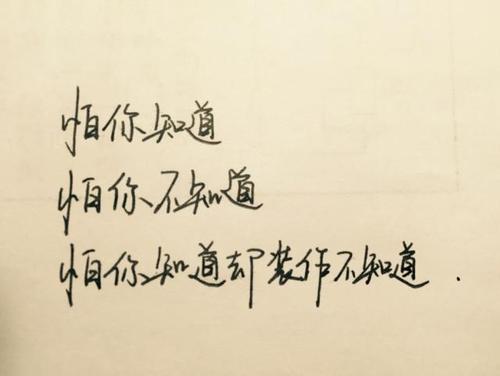 怕你知道
怕你不知道
怕你知道却装作不知道.